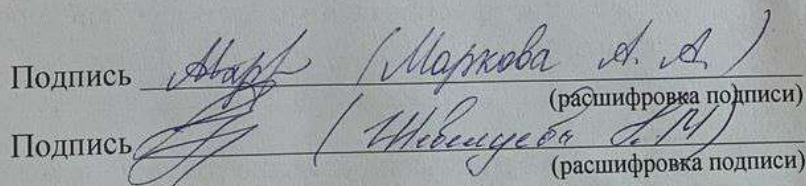 Подпись (Маркова А. А.)
(расшифровка подписи)
Подпись
(расшифровка подписи)